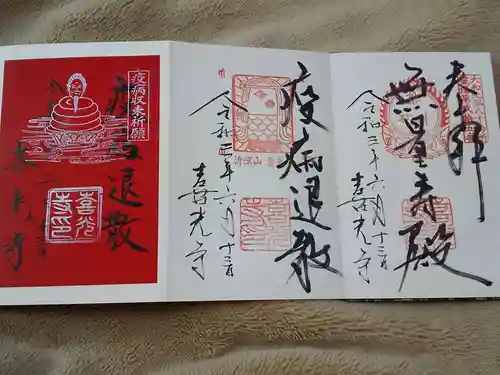 奉拝
無量寿殿
令和三年六月十三日
喜光寺
疫病退散
令和四年六月十二日
喜光寺
清涼山喜
疫病収束祈願
疫病退散
喜光寺
喜光寺印